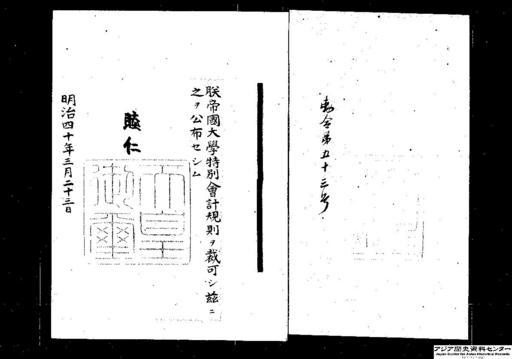 勅令第五十三号
朕帝國大學特別會計規則ヲ裁可シ茲ニ
之ヲ公布セシム
睦仁
天皇
御璽
明治四十年三月二十三日
アジア歴史資料センター
Japan Center for Asian Historical Records